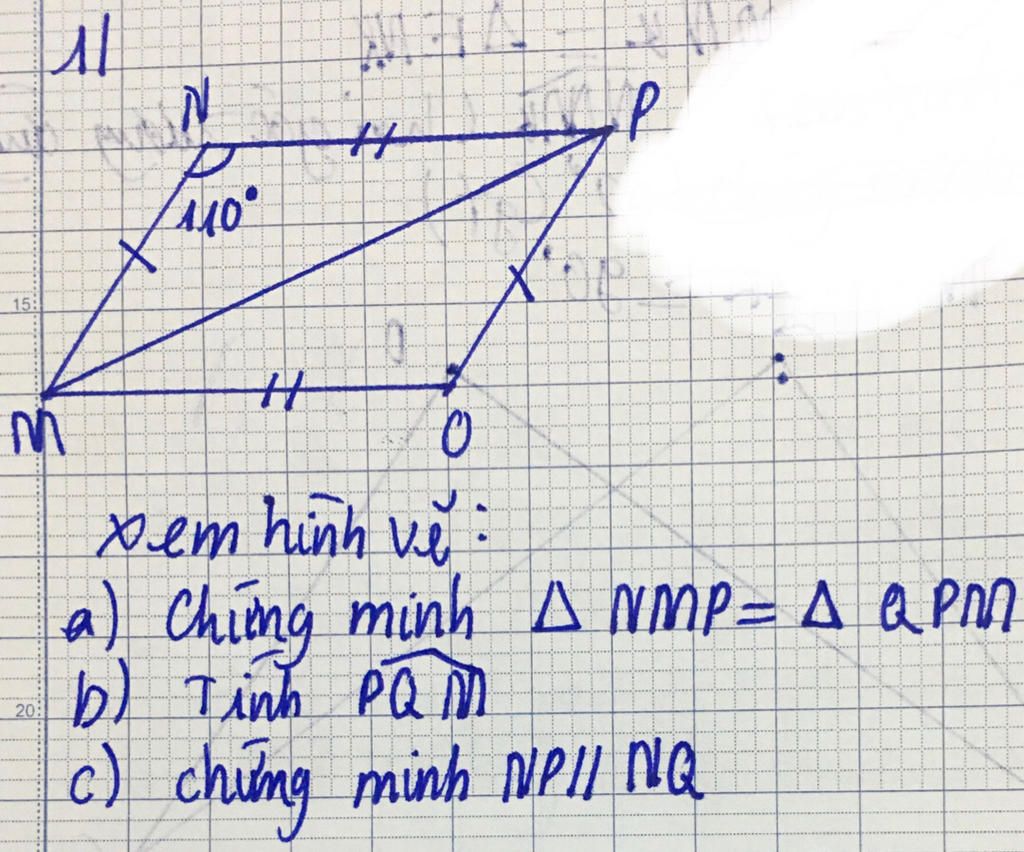 11
N
P
110°
15
M
Q
Xem hình vẽ:
a) Chứng minh Δ NMP = Δ QPM
b) Tính PQM
20
c) chứng minh NP // NQ